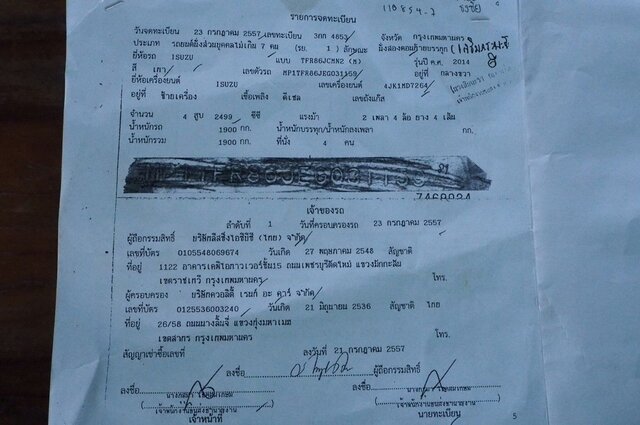 รายการจดทะเบียน
วันจดทะเบียน 23 กรกฎาคม 2557 เลขทะเบียน 3กก 4853 จังหวัด กรุงเทพมหานคร
ประเภท รถยนต์นั่งส่วนบุคคลไม่เกิน 7 คน (รย. 1) ลักษณะ นั่งสองตอนท้ายบรรทุก
ยี่ห้อรถ ISUZU แบบ TFR86JCMN2 (M) รุ่นปี ค.ศ. 2014
สี เทา เลขตัวรถ MP1TFR86JEG031159 อยู่ที่ กลางขวา
ยี่ห้อเครื่องยนต์ ISUZU เลขเครื่องยนต์ 4JK1MD7264
อยู่ที่ ซ้ายเครื่อง เชื้อเพลิง ดีเซล เลขถังแก๊ส
จำนวน 4 สูบ 2499 ซีซี แรงม้า 2 เพลา 4 ล้อ ยาง 4 เส้น
น้ำหนักรถ 1900 กก. น้ำหนักบรรทุก/น้ำหนักลงเพลา กก.
น้ำหนักรวม 1900 กก. ที่นั่ง 4 คน
เจ้าของรถ
ลำดับที่ 1 วันที่ครอบครองรถ 23 กรกฎาคม 2557
ผู้ถือกรรมสิทธิ์ บริษัทลีสซิ่งไอซีบีซี (ไทย) จำกัด
เลขที่บัตร 0105548069674 วันเกิด 27 พฤษภาคม 2548 สัญชาติ
ที่อยู่ 1122 อาคารเคพีไอทาวเวอร์ชั้น15 ถนนเพชรบุรีตัดใหม่ แขวงมักกะสัน
เขตราชเทวี กรุงเทพมหานคร โทร.
ผู้ครอบครอง บริษัทควอลิตี้ เรนท์ อะ คาร์ จำกัด
เลขที่บัตร 0125536003240 วันเกิด 21 มิถุนายน 2536 สัญชาติ ไทย
ที่อยู่ 26/58 ถนนนางลิ้นจี่ แขวงทุ่งมหาเมฆ
เขตสาทร กรุงเทพมหานคร โทร.
สัญญาเช่าซื้อเลขที่ ลงวันที่ 21 กรกฎาคม 2557
ลงชื่อ ผู้ถือกรรมสิทธิ์
ลงชื่อ ลงชื่อ
เจ้าหน้าที่ นายทะเบียน
5